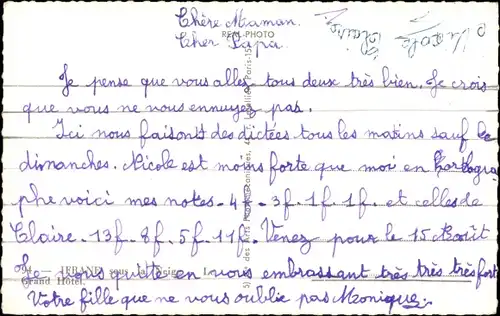 Chère Maman.
Cher Papa.
REAL-PHOTO
Nicole
Claire
Je pense que vous allez tous deux très bien. Je crois
que vous ne vous ennuyez pas.
Ici nous faisons des dictées tous les matins sauf le
dimanches. Nicole est moins forte que moi en hortogra
phe voici mes notes. 4f. 3f. 1f. 1f. et celles de
Claire. 13f. 8f. 5f. 11f. Venez pour le 15 Août
Je vous quitte en vous embrassant très très très fort
Votre fille que ne vous oublie pas Monique.
Grand Hôtel.